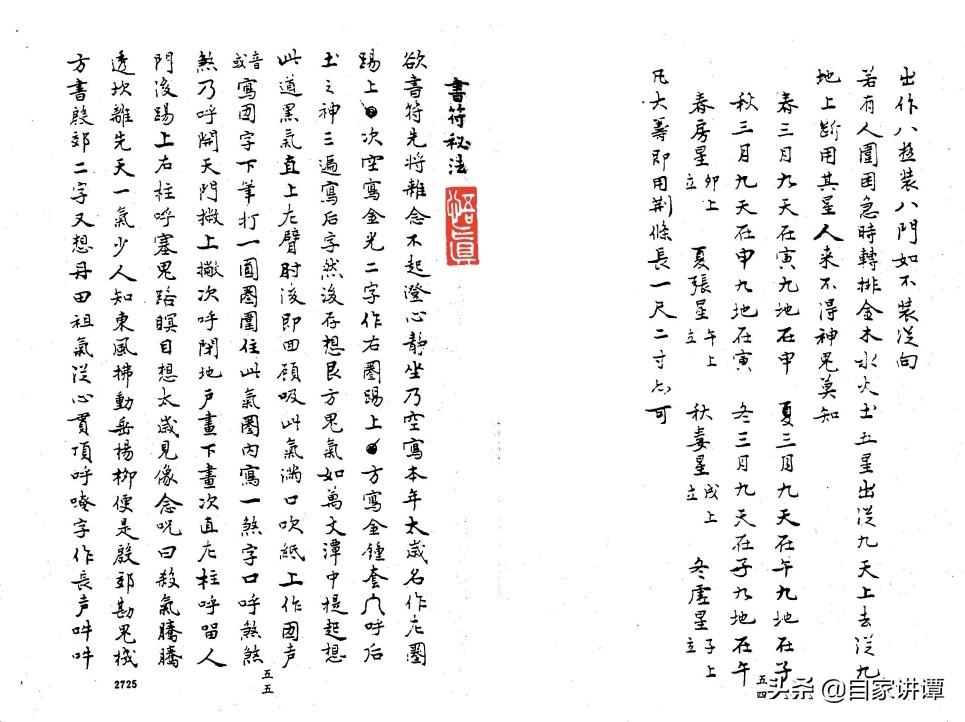 出作八極裝八門如不裝從向
若有人圍困急時轉排金木水火土五星出從九天上去從九
地上斷用其星人来不得神鬼莫知
春三月九天在寅九地在申　夏三月九天在午九地在子
秋三月九天在申九地在寅　冬三月九天在子九地在午
春房星卯上立　夏張星午上立　秋婁星戌上立　冬虛星子上立
凡大籌即用荆條長一尺二寸亦可
五四
書符秘法
悟真
欲書符先將雜念不起澄心靜坐乃空寫本年太歲名作左圈
踢上次空寫金光二字作右圈踢上方寫金鍾套穴呼后
土之神三遍寫后字然後存想艮方鬼氣如萬丈潭中提起想
此道黑氣直上左臂肘後即回顧吸此氣滿口吹紙上作囸声
或音寫囸字下筆打一圓圈圍住此氣圈內寫一煞字口呼煞煞
煞乃呼開天門撇上撇次呼閉地户畫下畫次直左柱呼留人
門後踢上右柱呼塞鬼路瞑目想太歲見像念呪曰殺氣騰騰
透坎離先天一氣少人知東風拂動岳楊柳便是殷郊勘鬼機
方書殷郊二字又想丹田祖氣從心貫頂呼唵字作長声吽吽
五五
2725
头条 @自家讲谭